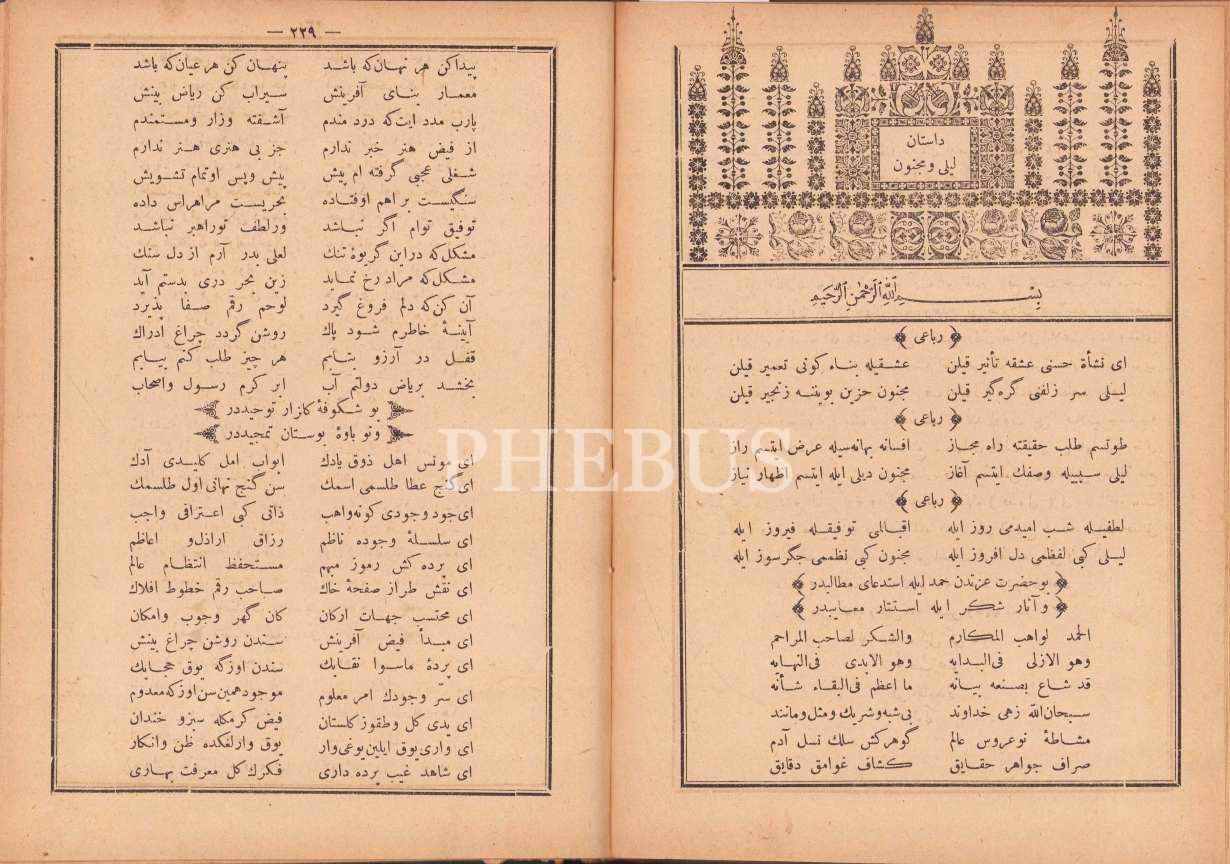 داستان
لیلی ومجنون
بسم الله الرحمن الرحیم
﴿ رباعی ﴾
ای نشأۀ حسنی عشقه تأثیر قیلن عشقیله بناء کونی تعمیر قیلن
لیلی سر زلفنی گره گیر قیلن مجنون حزین بوینه زنجیر قیلن
﴿ رباعی ﴾
طوتسم طلب حقیقته راه مجاز افسانه بهانه سیله عرض ایتسم راز
لیلی سببیله وصفك ایتسم آغاز مجنون دیلی ایله ایتسم اظهار نیاز
﴿ رباعی ﴾
لطفیله شب امیدمی روز ایله اقبالی توفیقله فیروز ایله
لیلی کبی لفظمی دل افروز ایله مجنون کبی نظممی جگرسوز ایله
﴿ بوحضرت عزتدن حمد ایله استدعای مطالبدر ﴾
﴿ وآثار شکر ایله استتار معایبدر ﴾
الحمد لواهب المکارم والشکر لصاحب المراحم
وهو الازلی فی البدایه وهو الابدی فی النهایه
قد شاع بصنعه بیانه ما اعظم فی البقاء شأنه
سبحان الله زهی خداوند بی شبه وشریك ومثل ومانند
مشاطۀ نوعروس عالم گوهرکش سلك نسل آدم
صراف جواهر حقایق کشاف غوامق دقایق
— ٢٢٩ —
پیداکن هر نهان که باشد پنهان کن هر عیان که باشد
معمار بنای آفرینش سیراب کن ریاض بینش
یارب مدد ایت که درد مندم آشفته وزار ومستمندم
از فیض هنر خبر ندارم جز بی هنری هنر ندارم
شغلی عجبی گرفته ام پیش پیش وپس اوتمام تشویش
سنگیست براهم اوفتاده بحریست مراهراس داده
توفیق توام اگر نباشد ورلطف توراهبر نباشد
مشکل که دراین گریوۀ تنك لعلی بدر آرم از دل سنك
مشکل که مراد رخ نماید زین بحر دری بدستم آید
آن کن که دلم فروغ گیرد لوحم رقم صفا پذیرد
آیینۀ خاطرم شود پاك روشن گردد چراغ ادراك
قفل در آرزو بتابم هر چیز طلب کنم بیابم
بخشد بریاض دولتم آب ابر کرم رسول واصحاب
بو شکوفۀ کلزار توحیددر
ونوباوۀ بوستان تمجیددر
ای مونس اهل ذوق یادك ابواب امل کلیدی آدك
ای گنج عطا طلسمی اسمك سن گنج نهانی اول طلسمك
ای جود وجودی کونه واهب ذاتی کبی اعترافی واجب
ای سلسلۀ وجوده ناظم رزاق اراذل و اعاظم
ای پرده کش رموز مبهم مستحفظ انتظام عالم
ای نقش طراز صفحۀ خاك صاحب رقم خطوط افلاك
ای محتسب جهات ارکان کان گهر وجوب وامکان
ای مبدأ فیض آفرینش سندن روشن چراغ بینش
ای پردۀ ماسوا نقابك سندن اوزگه یوق حجابك
ای سر وجودك امر معلوم موجود همین سن اوزگه معدوم
ای یدی کل وطقوز کلستان فیض کرمکله سبزو خندان
ای واری یوق ایلین یوغی وار یوق وارلغکده ظن وانکار
ای شاهد غیب پرده داری فکرك کل معرفت بهاری
PHEBUS